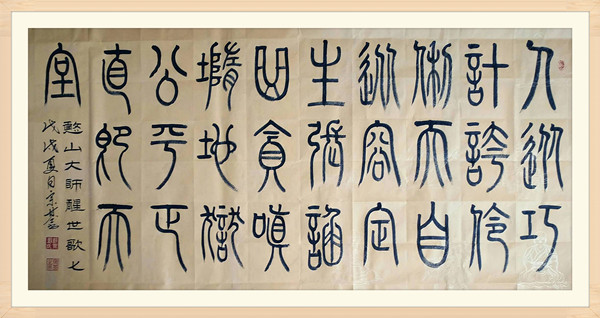 人從巧
計誇伶
俐天自
從容定
主張諂
曲貪嗔
墮地獄
公平正
直即天
堂
憨山大師醒世歌七
戊戌夏月